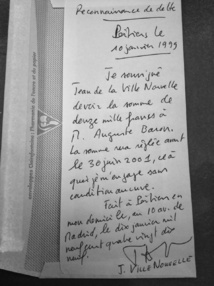 Reconnaissance de dette
Poitiers le
10 janvier 1999
Je soussigné
Jean de la Ville Nouvelle
devoir la somme de
douze mille francs à
M. Auguste Baron.
La somme sera réglée avant
le 30 juin 2001, ce à
quoi je m'engage sans
condition aucune.
Fait à Poitiers en
mon domicile, en 10 av. de
Madrid, le dix janvier mil
neuf cent quatre vingt dix
neuf.
J. VILLE NOUVELLE